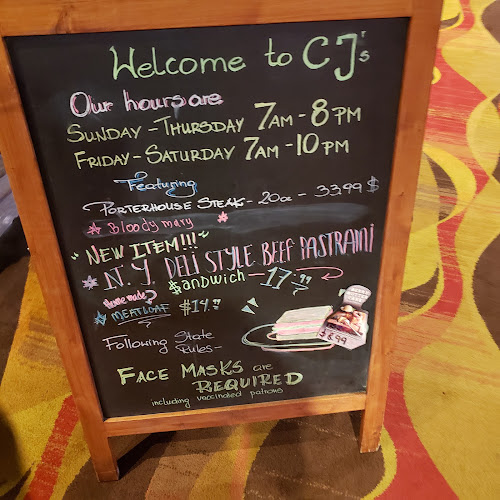 Welcome to CJ's
Our hours are
SUNDAY - THURSDAY 7AM - 8PM
FRIDAY - SATURDAY 7AM - 10PM
Featuring
PORTERHOUSE STEAK - 20oz - 3399 $
Bloody mary
"NEW ITEM!!!"
N.Y. DELI STYLE BEEF PASTRAMI
Sandwich - 17.99
Home made
MEATLOAF $14.99
$8.99
Following State
Rules -
FACE MASKS are
REQUIRED
including vaccinated patrons